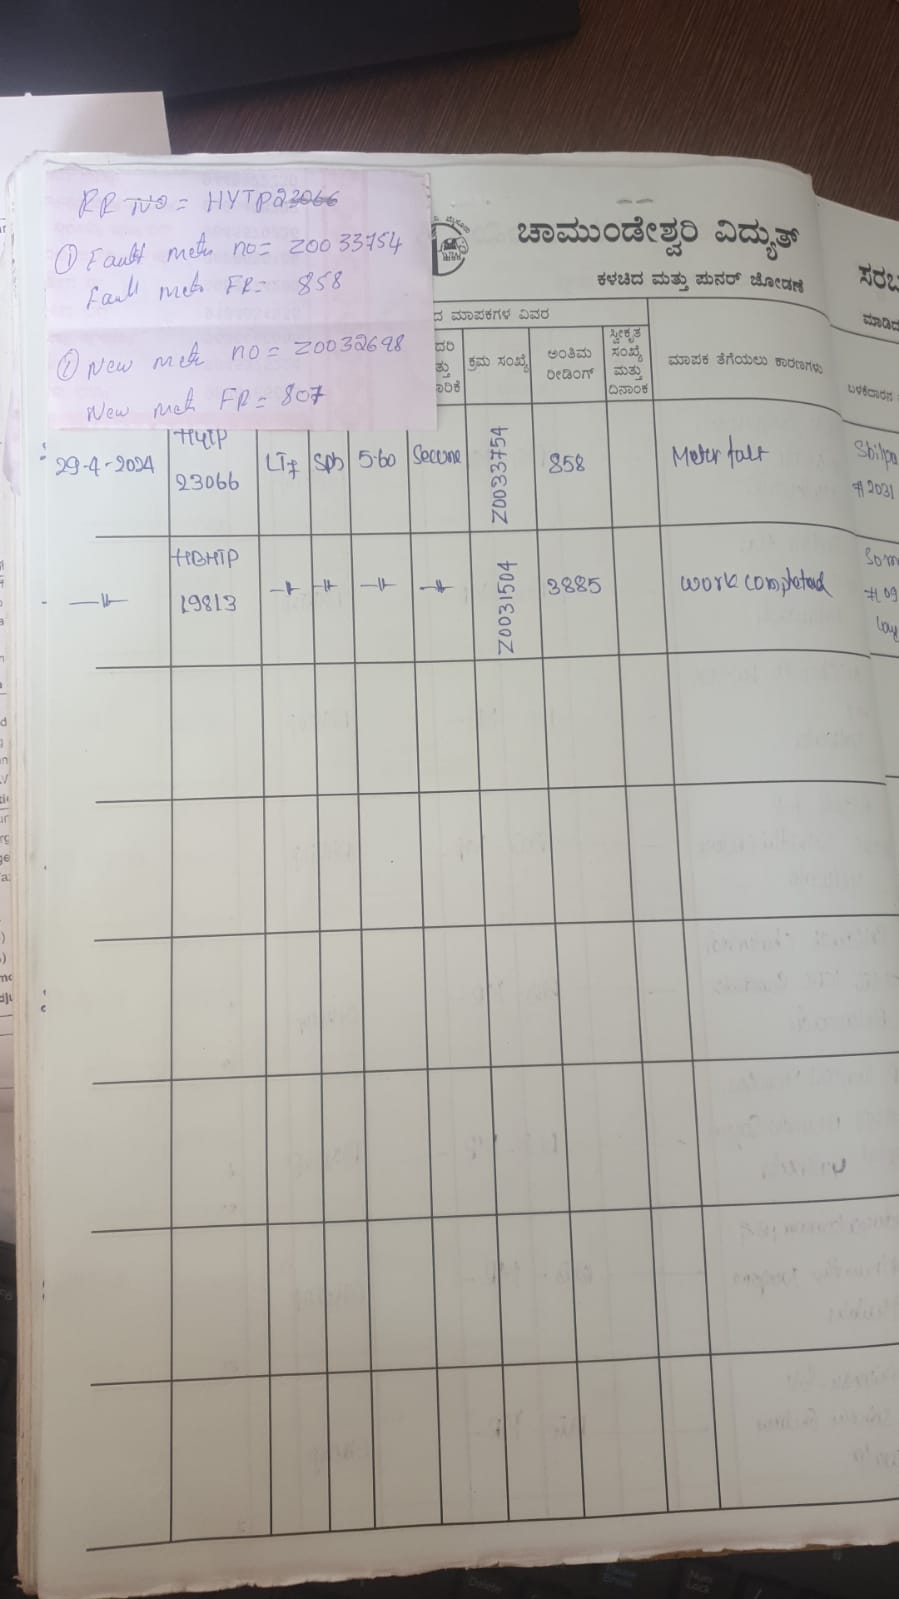 RR NO = HYTP23066
① Fault mete no = Z0033754
Fault mete FR = 858
② New mete no = Z0032698
New mete FR = 807
ಚಾಮುಂಡೇಶ್ವರಿ ವಿದ್ಯುತ್
ಕಳಚಿದ ಮತ್ತು ಪುನರ್ ಜೋಡಣೆ
ಸರಬ
ಮಾಡಿದ
ದ ಮಾಪಕಗಳ ವಿವರ
ಕ್ರಮ ಸಂಖ್ಯೆ
ಅಂತಿಮ
ರೀಡಿಂಗ್
ಸ್ವೀಕೃತ
ಸಂಖ್ಯೆ
ಮತ್ತು
ದಿನಾಂಕ
ಮಾಪಕ ತೆಗೆಯಲು ಕಾರಣಗಳು
ಬಳಕೆದಾರನ
29-4-2024 HYTP 23066 LT7 Sph 5-60 Secure Z0033754 858 Meter falt
#2031
HBHTP 19813 Z0031504 3885 work completed
Som
#109
Lay